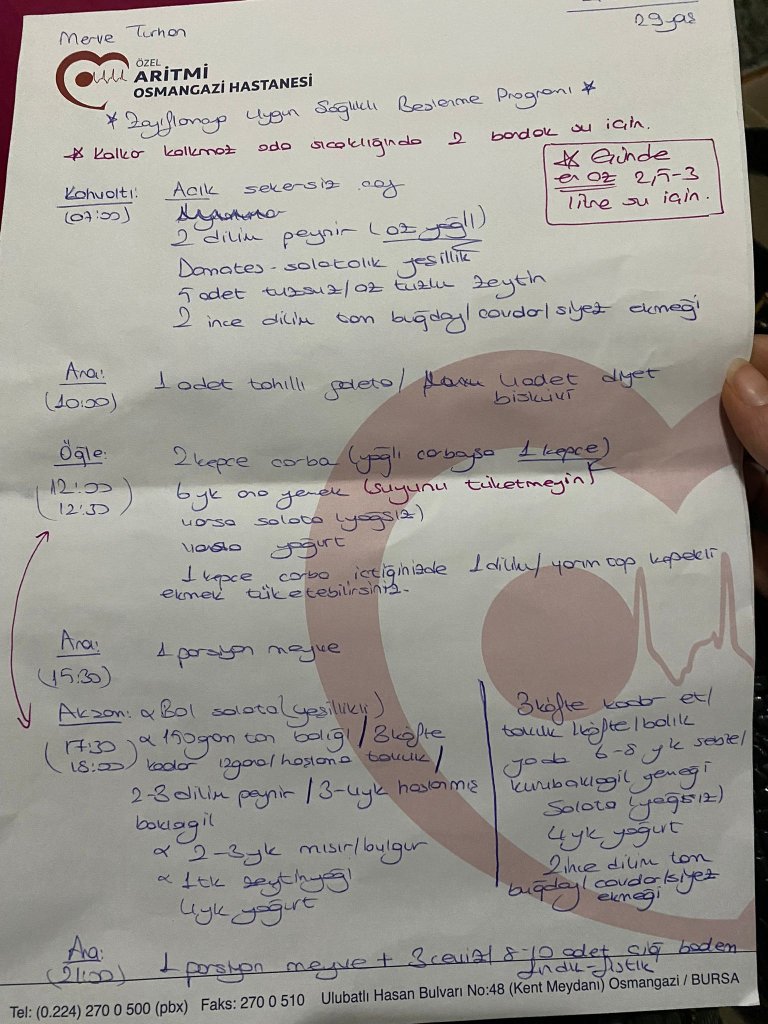 Merve Turhan
29 yaş
ÖZEL
ARİTMİ
OSMANGAZİ HASTANESİ
* Zayıflamaya Uygun Sağlıklı Beslenme Programı *
* Kalkar kalkmaz oda sıcaklığında 2 bardak su için.
* Günde
en az 2,5-3
litre su için.
Kahvaltı: Açık şekersiz çay
(07:00)
2 dilim peynir (az yağlı)
Domates-salatalık yeşillik
5 adet tuzsuz/az tuzlu zeytin
2 ince dilim tam buğday/çavdar/siyez ekmeği
Ara: 1 adet tahıllı galeta/ 4 adet diyet
(10:00) bisküvi
Öğle: 2 kepçe çorba (yağlı çorbaysa 1 kepçe)
(12:00 6 yk ana yemek (suyunu tüketmeyin)
12:30) varsa salata (yağsız)
varsa yoğurt
1 kepçe çorba içtiğinizde 1 dilim/yarım top kepekli
ekmek tüketebilirsiniz.
Ara: 1 porsiyon meyve
(15:30)
Akşam: α Bol salata (yeşillikli)
(17:30 α 150 gram ton balığı / 3 köfte
18:00) kadar ızgara/haşlama tavuk/
2-3 dilim peynir / 3-4 yk haşlanmış
baklagil
α 2-3 yk mısır/bulgur
α 1 tk zeytinyağı
4 yk yoğurt
3 köfte kadar et/
tavuk/köfte/balık
yada 6-8 yk sebze/
kurubaklagil yemeği
Salata (yağsız)
4 yk yoğurt
2 ince dilim tam
buğday/çavdar/siyez
ekmeği
Ara: 1 porsiyon meyve + 3 ceviz/ 8-10 adet çiğ badem
(21:00) fındık-fıstık
Tel: (0.224) 270 0 500 (pbx) Faks: 270 0 510 Ulubatlı Hasan Bulvarı No:48 (Kent Meydanı) Osmangazi / BURSA